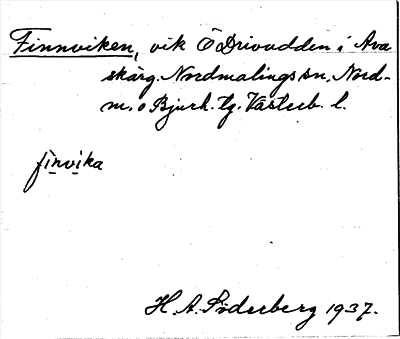 Finnviken, vik Ö Drivudden i Ava
skärg. Nordmalings sn, Nord-
m. o Bjurh. tg. Västerb. l.
finvika
H. A. Söderberg 1937.